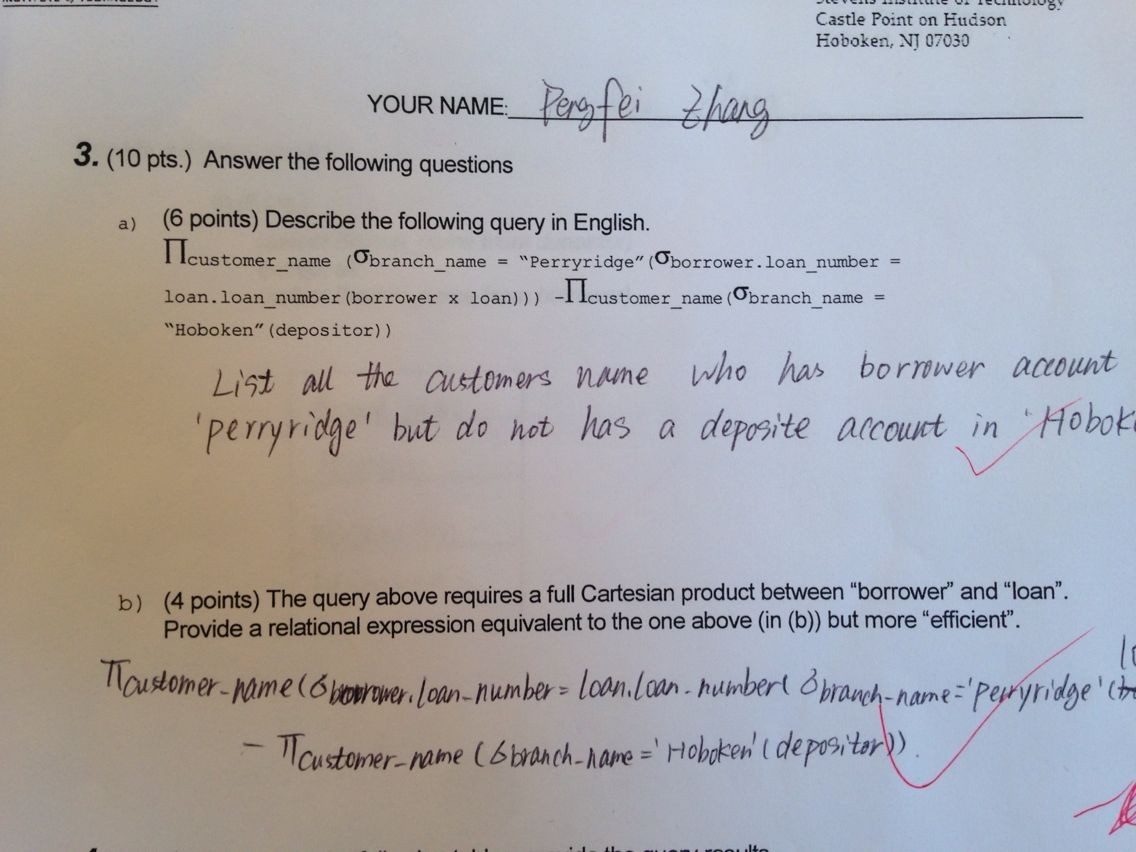 Castle Point on Hudson
Hoboken, NJ 07030
YOUR NAME: Pengfei Zhang
3. (10 pts.) Answer the following questions
a) (6 points) Describe the following query in English.
∏customer_name (σbranch_name = “Perryridge”(σborrower.loan_number =
loan.loan_number(borrower x loan))) -∏customer_name(σbranch_name =
“Hoboken”(depositor))
List all the customers name who has borrower account
'perryridge' but do not has a deposite account in 'Hobok
b) (4 points) The query above requires a full Cartesian product between “borrower” and “loan”.
Provide a relational expression equivalent to the one above (in (b)) but more “efficient”.
πcustomer_name(σborrower.loan_number = loan.loan_number(σbranch_name='perryridge'(
- πcustomer_name(σbranch_name='Hoboken'(depositor)).